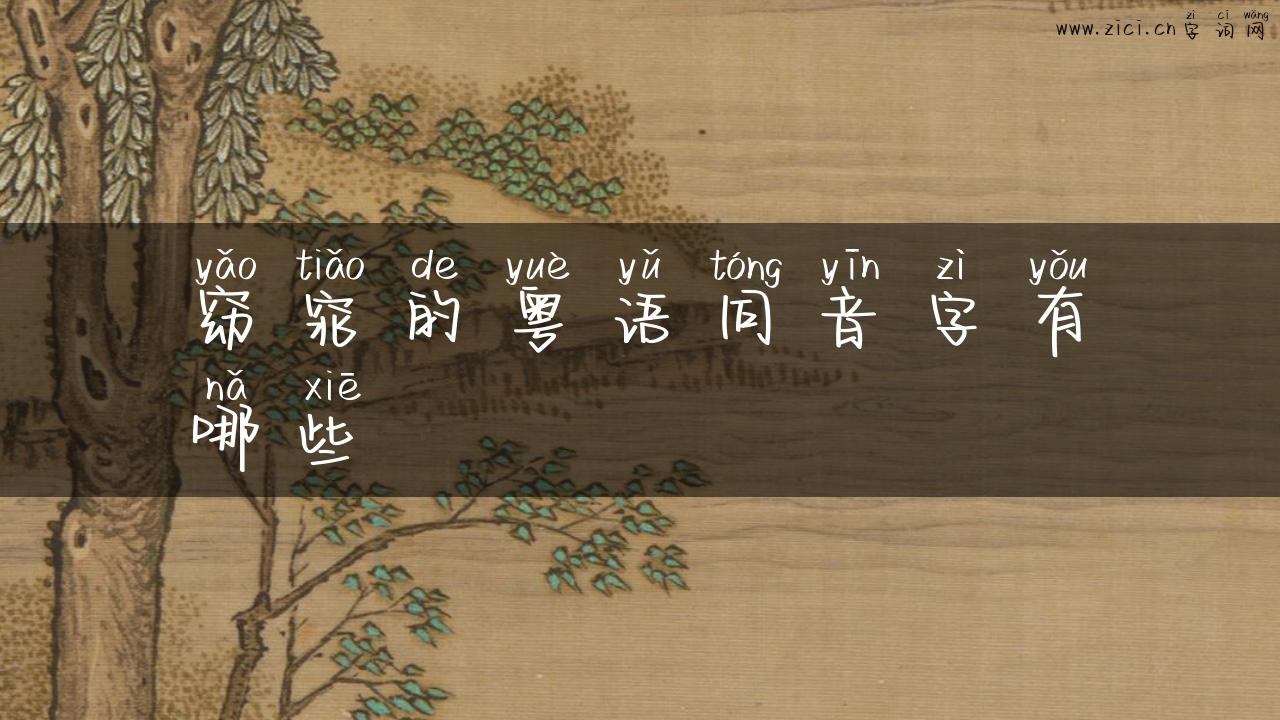 zì cí wǎng
www.zici.cn 字词网
yǎo tiǎo de yuè yǔ tóng yīn zì yǒu
窈窕的粤语同音字有
nǎ xiē
哪些